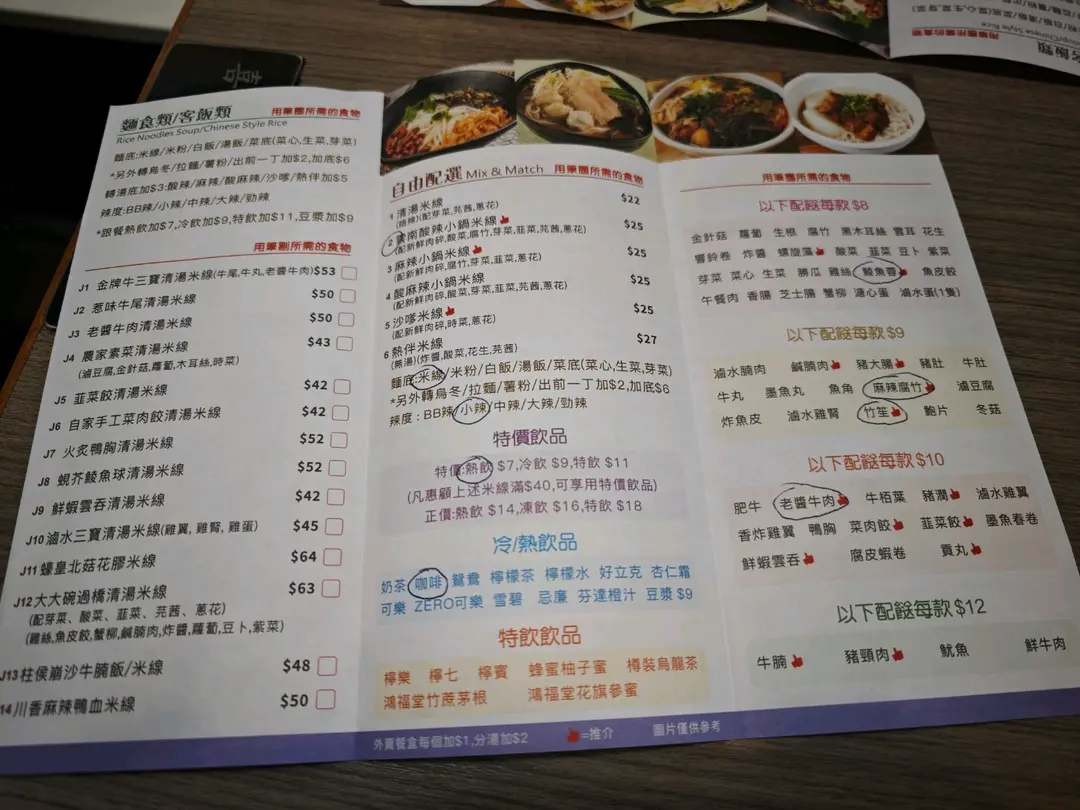 麵食類/客飯類 用筆圈所需的食物
Rice Noodles Soup/Chinese Style Rice
麵底:米線/米粉/白飯/湯飯/菜底(菜心,生菜,芽菜)
*另外轉烏冬/拉麵/薯粉/出前一丁加$2,加底$6
轉湯底加$3:酸辣/麻辣/酸麻辣/沙嗲/熱伴加$5
辣度:BB辣/小辣/中辣/大辣/勁辣
*跟餐熱飲加$7,冷飲加$9,特飲加$11,豆漿加$9
用筆剔所需的食物
J1 金牌牛三寶清湯米線(牛尾,牛丸,老醬牛肉) $53
J2 惹味牛尾清湯米線 $50
J3 老醬牛肉清湯米線 $50
J4 農家素菜清湯米線 $43
(滷豆腐,金針菇,蘿蔔,木耳絲,時菜)
J5 韮菜餃清湯米線 $42
J6 自家手工菜肉餃清湯米線 $42
J7 火炙鴨胸清湯米線 $52
J8 蜆芥鯪魚球清湯米線 $52
J9 鮮蝦雲吞清湯米線 $42
J10 滷水三寶清湯米線(雞翼,雞腎,雞蛋) $45
J11 蠔皇北菇花膠米線 $64
J12 大大碗過橋清湯米線 $63
(配芽菜、酸菜、韮菜、芫茜、蔥花)
(雞絲,魚皮餃,蟹柳,鹹腩肉,炸醬,蘿蔔,豆卜,紫菜)
J13 柱侯崩沙牛腩飯/米線 $48
14 川香麻辣鴨血米線 $50
自由配選 Mix & Match 用筆圈所需的食物
1 清湯米線 $22
(配芽菜,芫茜,蔥花)
2 雲南酸辣小鍋米線 $25
(配新鮮肉碎,酸菜,腐竹,芽菜,韮菜,芫茜,蔥花)
3 麻辣小鍋米線 $25
(配新鮮肉碎,腐竹,芽菜,韮菜,蔥花)
4 酸麻辣小鍋米線 $25
(配新鮮肉碎,酸菜,芽菜,韮菜,芫茜,蔥花)
5 沙嗲米線 $25
(配新鮮肉碎,時菜,蔥花)
6 熱伴米線 $27
(無湯)(炸醬,酸菜,花生,芫茜)
麵底:米線/米粉/白飯/湯飯/菜底(菜心,生菜,芽菜)
*另外轉烏冬/拉麵/薯粉/出前一丁加$2,加底$6
辣度:BB辣/小辣/中辣/大辣/勁辣
特價飲品
特價:熱飲 $7,冷飲 $9,特飲 $11
(凡惠顧上述米線滿$40,可享用特價飲品)
正價:熱飲 $14,凍飲 $16,特飲 $18
冷/熱飲品
奶茶 咖啡 鴛鴦 檸檬茶 檸檬水 好立克 杏仁霜
可樂 ZERO可樂 雪碧 忌廉 芬達橙汁 豆漿 $9
特飲飲品
檸樂 檸七 檸賓 蜂蜜柚子蜜 樽裝烏龍茶
鴻福堂竹蔗茅根 鴻福堂花旗參蜜
用筆圈所需的食物
以下配餸每款 $8
金針菇 蘿蔔 生根 腐竹 黑木耳絲 雲耳 花生
響鈴卷 炸醬 螺旋藻 酸菜 韮菜 豆卜 紫菜
芽菜 菜心 生菜 勝瓜 雞絲 鯪魚蓉 魚皮餃
午餐肉 香腸 芝士腸 蟹柳 溏心蛋 滷水蛋(1隻)
以下配餸每款 $9
滷水腩肉 鹹腩肉 豬大腸 豬肚 牛肚
牛丸 墨魚丸 魚角 麻辣腐竹 滷豆腐
炸魚皮 滷水雞腎 竹笙 鮑片 冬菇
以下配餸每款 $10
肥牛 老醬牛肉 牛栢葉 豬潤 滷水雞翼
香炸雞翼 鴨胸 菜肉餃 韮菜餃 墨魚春卷
鮮蝦雲吞 腐皮蝦卷 貢丸
以下配餸每款 $12
牛腩 豬頸肉 魷魚 鮮牛肉
外賣餐盒每個加$1,分湯加$2 =推介 圖片僅供參考